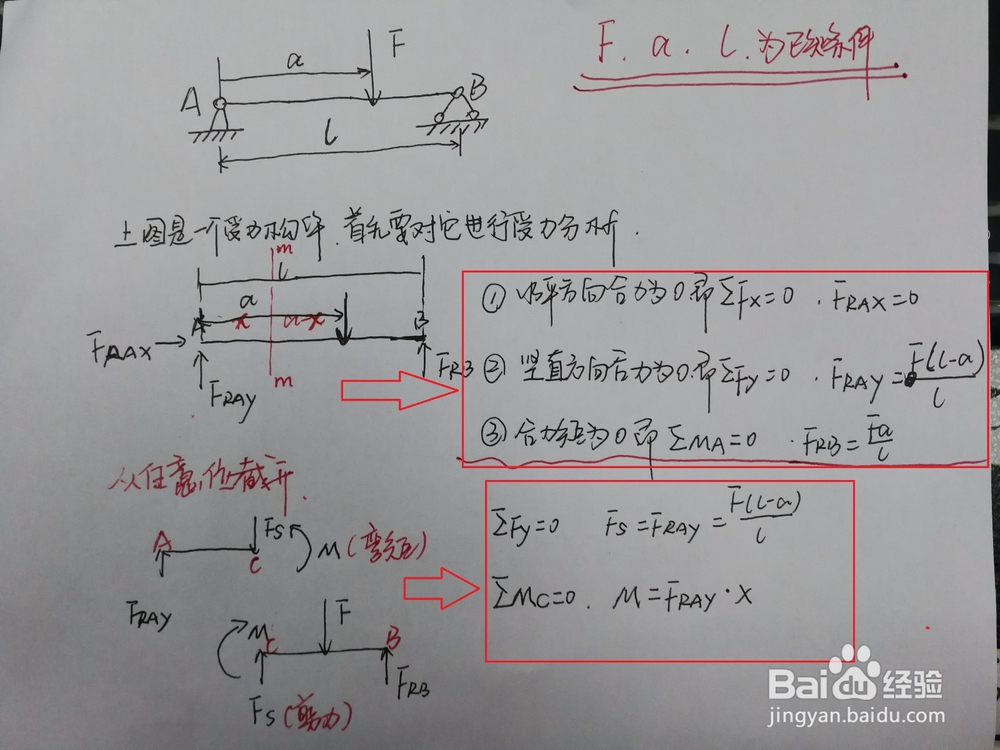 F. a. l. 为已知条件
a F
A B
l
上图是一个受力构件.首先要对它进行受力分析.
m
l
a
A x a-x B
FRAX
m
FRAY
FRB
① 水平方向合力为0.即ΣFX=0 . FRAX=0
② 竖直方向合力为0.即ΣFy=0 . FRAY=F(l-a)/l
③ 合力矩为0即 ΣMA=0 . FRB=Fa/l
从任意位截开.
A FS
C M(弯矩)
FRAY
ΣFy=0 FS=FRAY=F(l-a)/l
ΣMC=0. M=FRAY·X
M F
C B
FRB
FS(剪力)
Baidu 经验
jingyan.baidu.com